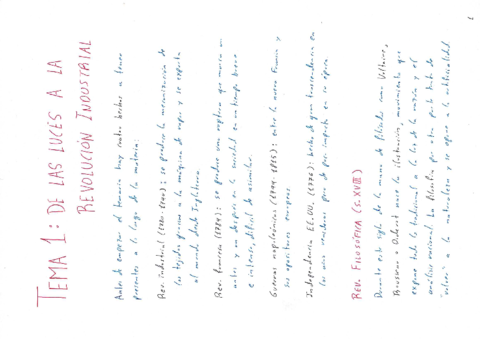 TEMA 1: DE LAS LUCES A LA
REVOLUCIÓN INDUSTRIAL
Antes de empezar el temario hay cuatro hechos a tener
presentes a lo largo de la materia:
Rev. industrial (1780-1800): se produce la mecanización de
los tejidos gracias a la máquina de vapor y se exporta
al mundo desde Inglaterra
Rev. francesa (1789): se produce una ruptura que marca un
antes y un después en la sociedad en un tiempo breve
e intenso, difícil de asimilar.
Guerras napoleónicas (1799-1815): entre la nueva Francia y
sus opositores europeos
Independencia EE.UU. (1776): hecho de gran trascendencia en
los años venideros pero de poco impacto en su época
REV. FILOSÓFICA (S. XVIII)
Durante este siglo, de la mano de filósofos como Voltaire,
Rousseau o Diderot nace la ilustración, movimiento que
expone todo lo tradicional a la luz de la razón y el
análisis racional. La filosofía por otra parte trata de
"volver" a la naturaleza y se opone a la artificialidad
1